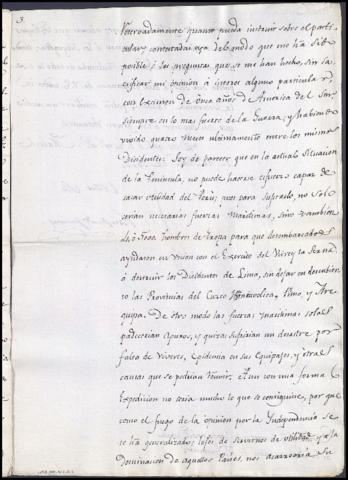 3.
Reservadamente quanto pueda instruir sobre el parti-
cular, contestadas ya del modo que me há sido
posible á las preguntas que se me han hecho, sin sa-
crificar mi opinion á interes alguno particular,
con examen de once años de America del Sur,
siempre en lo mas fuerte de la Guerra; y habiendo
vivido quatro meses ultimamente entre los mismos
Disidentes: Soy de parecer, que en la actual Situacion
de la Peninsula, no puede hacerse esfuerzo capaz de
sacar utilidad del Perú; pues para lograrlo, no sol.
serian necesarias fuerzas Maritimas, sino tambien
hombres de tropa para que desembarcados
ayudasen en union con el Exercito del Virrey la Serna
á destruir los Disidentes de Lima, sin dejar en descubier-
to las Provincias del Cuzco Puno, y Are-
quipa. De otro modo las fuerzas maritimas solas
padecerian apuros, y quizá sufririan un desastre por
falta de Viveres, epidemia en sus Equipajes, y otras
causas que se podrian reunir. Aun con una formal
Expedicion no seria mucho lo que se consiguiese, por que
como el fuego de la opinion por la Independencia se
há generalizado; lejos de servirnos de utilidad
Dominacion de aquellos Paises, nos acarrearia su